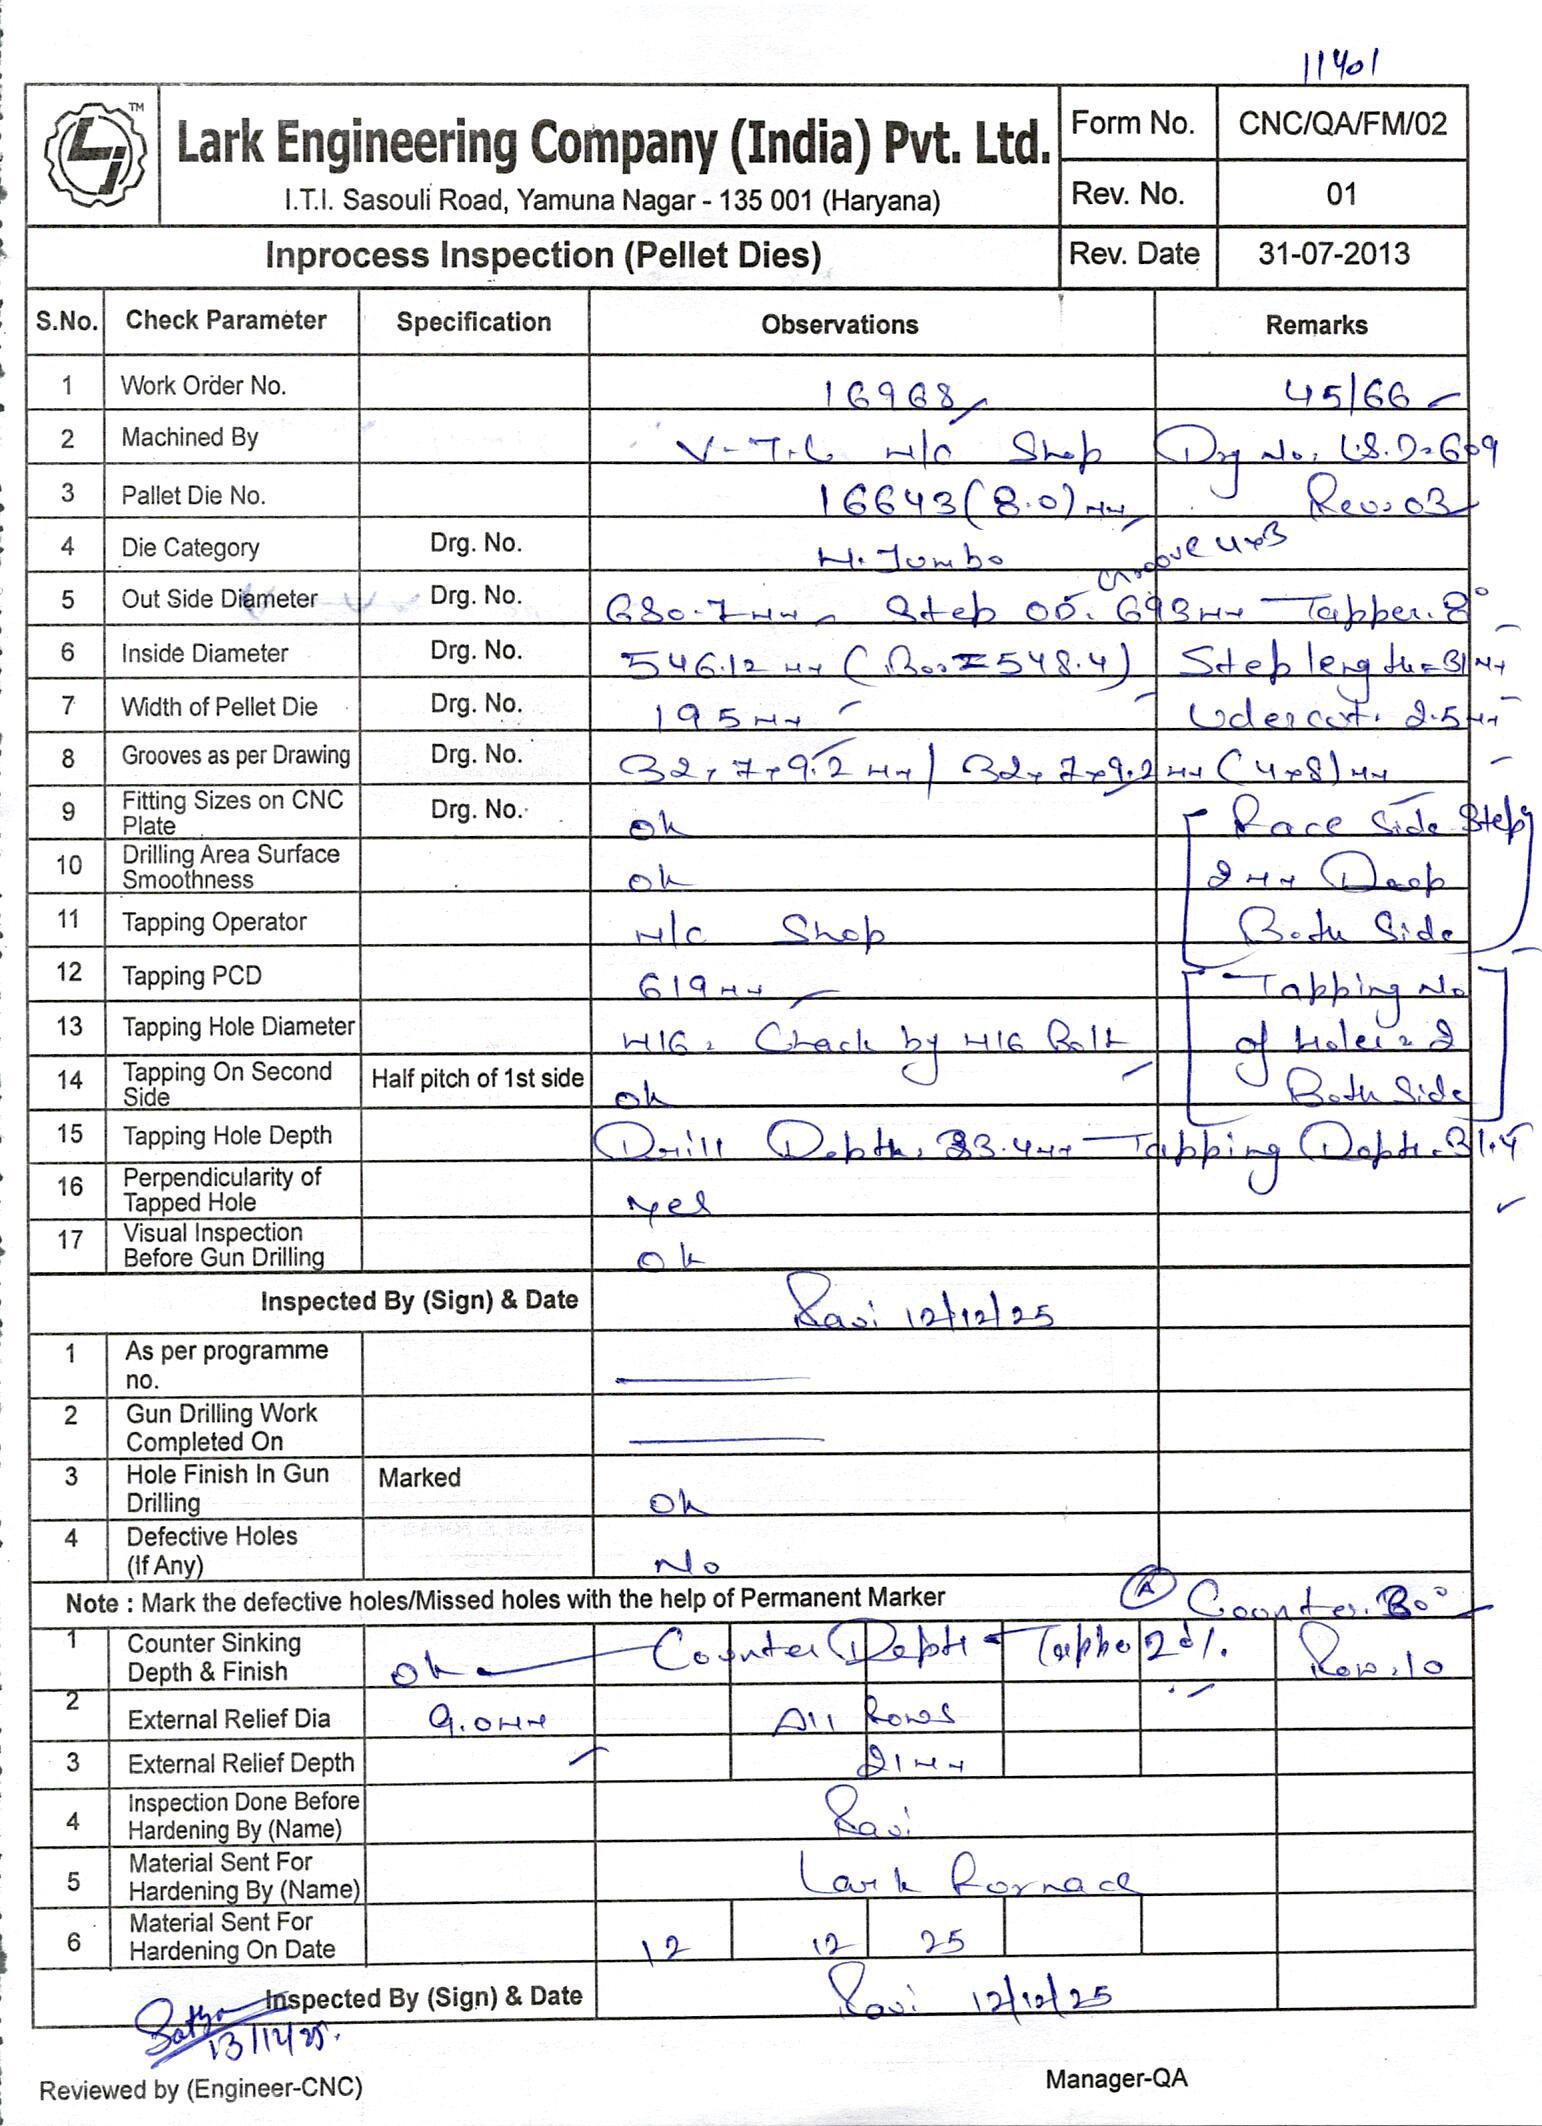 11401
TM
Lark Engineering Company (India) Pvt. Ltd.
I.T.I. Sasouli Road, Yamuna Nagar - 135 001 (Haryana)
Form No. CNC/QA/FM/02
Rev. No. 01
Inprocess Inspection (Pellet Dies) Rev. Date 31-07-2013
S.No. Check Parameter Specification Observations Remarks
1 Work Order No. 16968 45/66
2 Machined By V-T.L M/C Shop Drg No. L.S.D-609
3 Pallet Die No. 16643 (8.0) mm Rev. 03
4 Die Category Drg. No. H. Jumbo Groove 4x3
5 Out Side Diameter Drg. No. 680.7mm Step OD. 693mm Tapper. 8°
6 Inside Diameter Drg. No. 546.12 mm (Bore=548.4) Step length=31mm
7 Width of Pellet Die Drg. No. 195mm Udercut. 2.5mm
8 Grooves as per Drawing Drg. No. 32x7x9.2mm / 32x7x9.2mm (4x8)mm
9 Fitting Sizes on CNC Plate Drg. No. ok Race Side Step
10 Drilling Area Surface Smoothness ok 2mm Deep
11 Tapping Operator M/C Shop Both Side
12 Tapping PCD 619mm Tapping No
13 Tapping Hole Diameter M16. Check by M16 Bolt of Holes=2
14 Tapping On Second Side Half pitch of 1st side ok Both Side
15 Tapping Hole Depth Drill Depth. 33.4mm Tapping Depth-31.4
16 Perpendicularity of Tapped Hole yes
17 Visual Inspection Before Gun Drilling ok
Inspected By (Sign) & Date Ravi 12/12/25
1 As per programme no.
2 Gun Drilling Work Completed On
3 Hole Finish In Gun Drilling Marked ok
4 Defective Holes (If Any) No
Note : Mark the defective holes/Missed holes with the help of Permanent Marker A Counter. 30°
1 Counter Sinking Depth & Finish ok Counter Depth Row. 10
2 External Relief Dia 9.0mm All Rows
3 External Relief Depth 21mm
4 Inspection Done Before Hardening By (Name) Ravi
5 Material Sent For Hardening By (Name) Lark Fornace
6 Material Sent For Hardening On Date 12 12 25
Inspected By (Sign) & Date Ravi 12/12/25
13/12/25.
Reviewed by (Engineer-CNC) Manager-QA